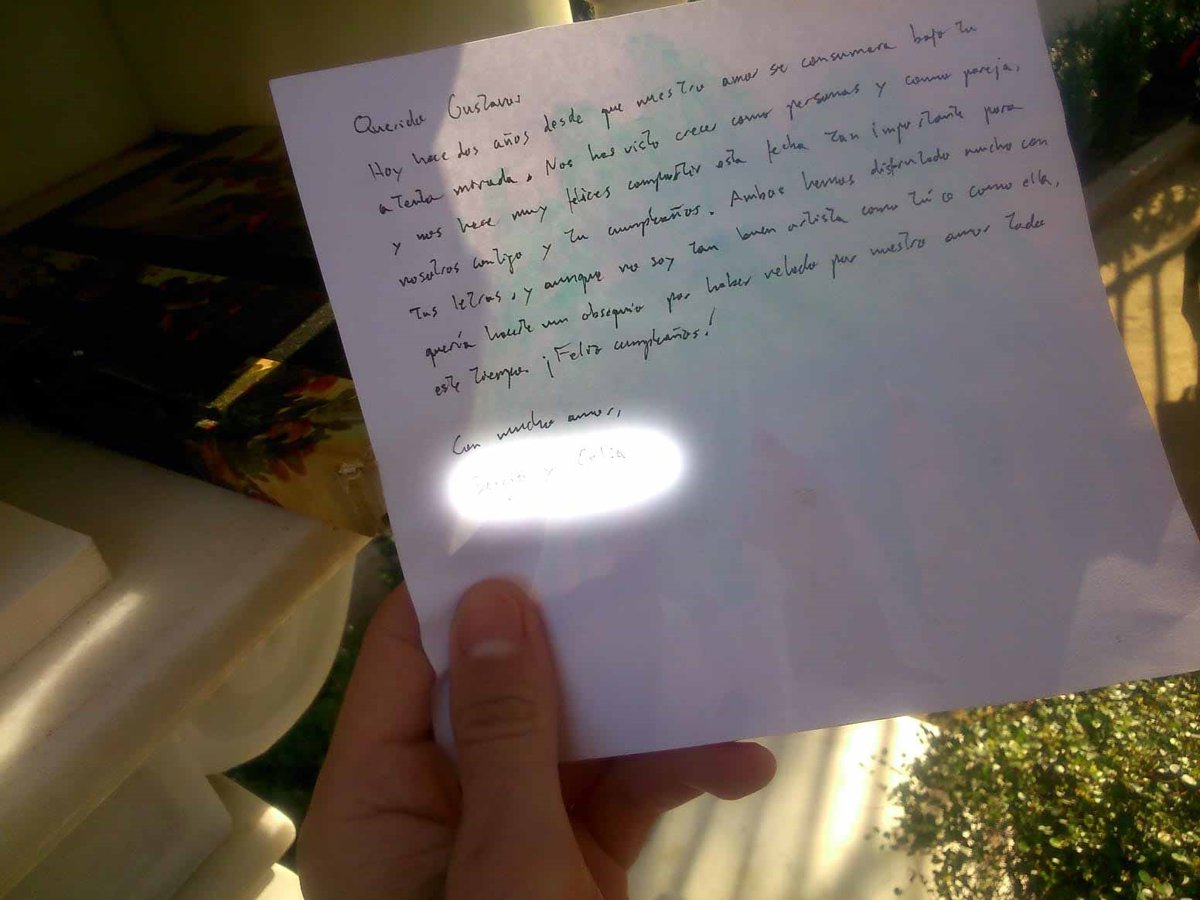 Querido Gustavo:
Hoy hace dos años desde que nuestro amor se consumara bajo tu
atenta mirada. Nos has visto crecer como personas y como pareja,
y nos hace muy felices compartir esta fecha tan importante para
nosotros contigo y tu cumpleaños. Ambos hemos disfrutado mucho con
tus letras, y aunque no soy tan buen artista como tú o como ella,
quería hacerte un obsequio por haber velado por nuestro amor todo
este tiempo. ¡Feliz cumpleaños!
Con mucho amor,
y Celia